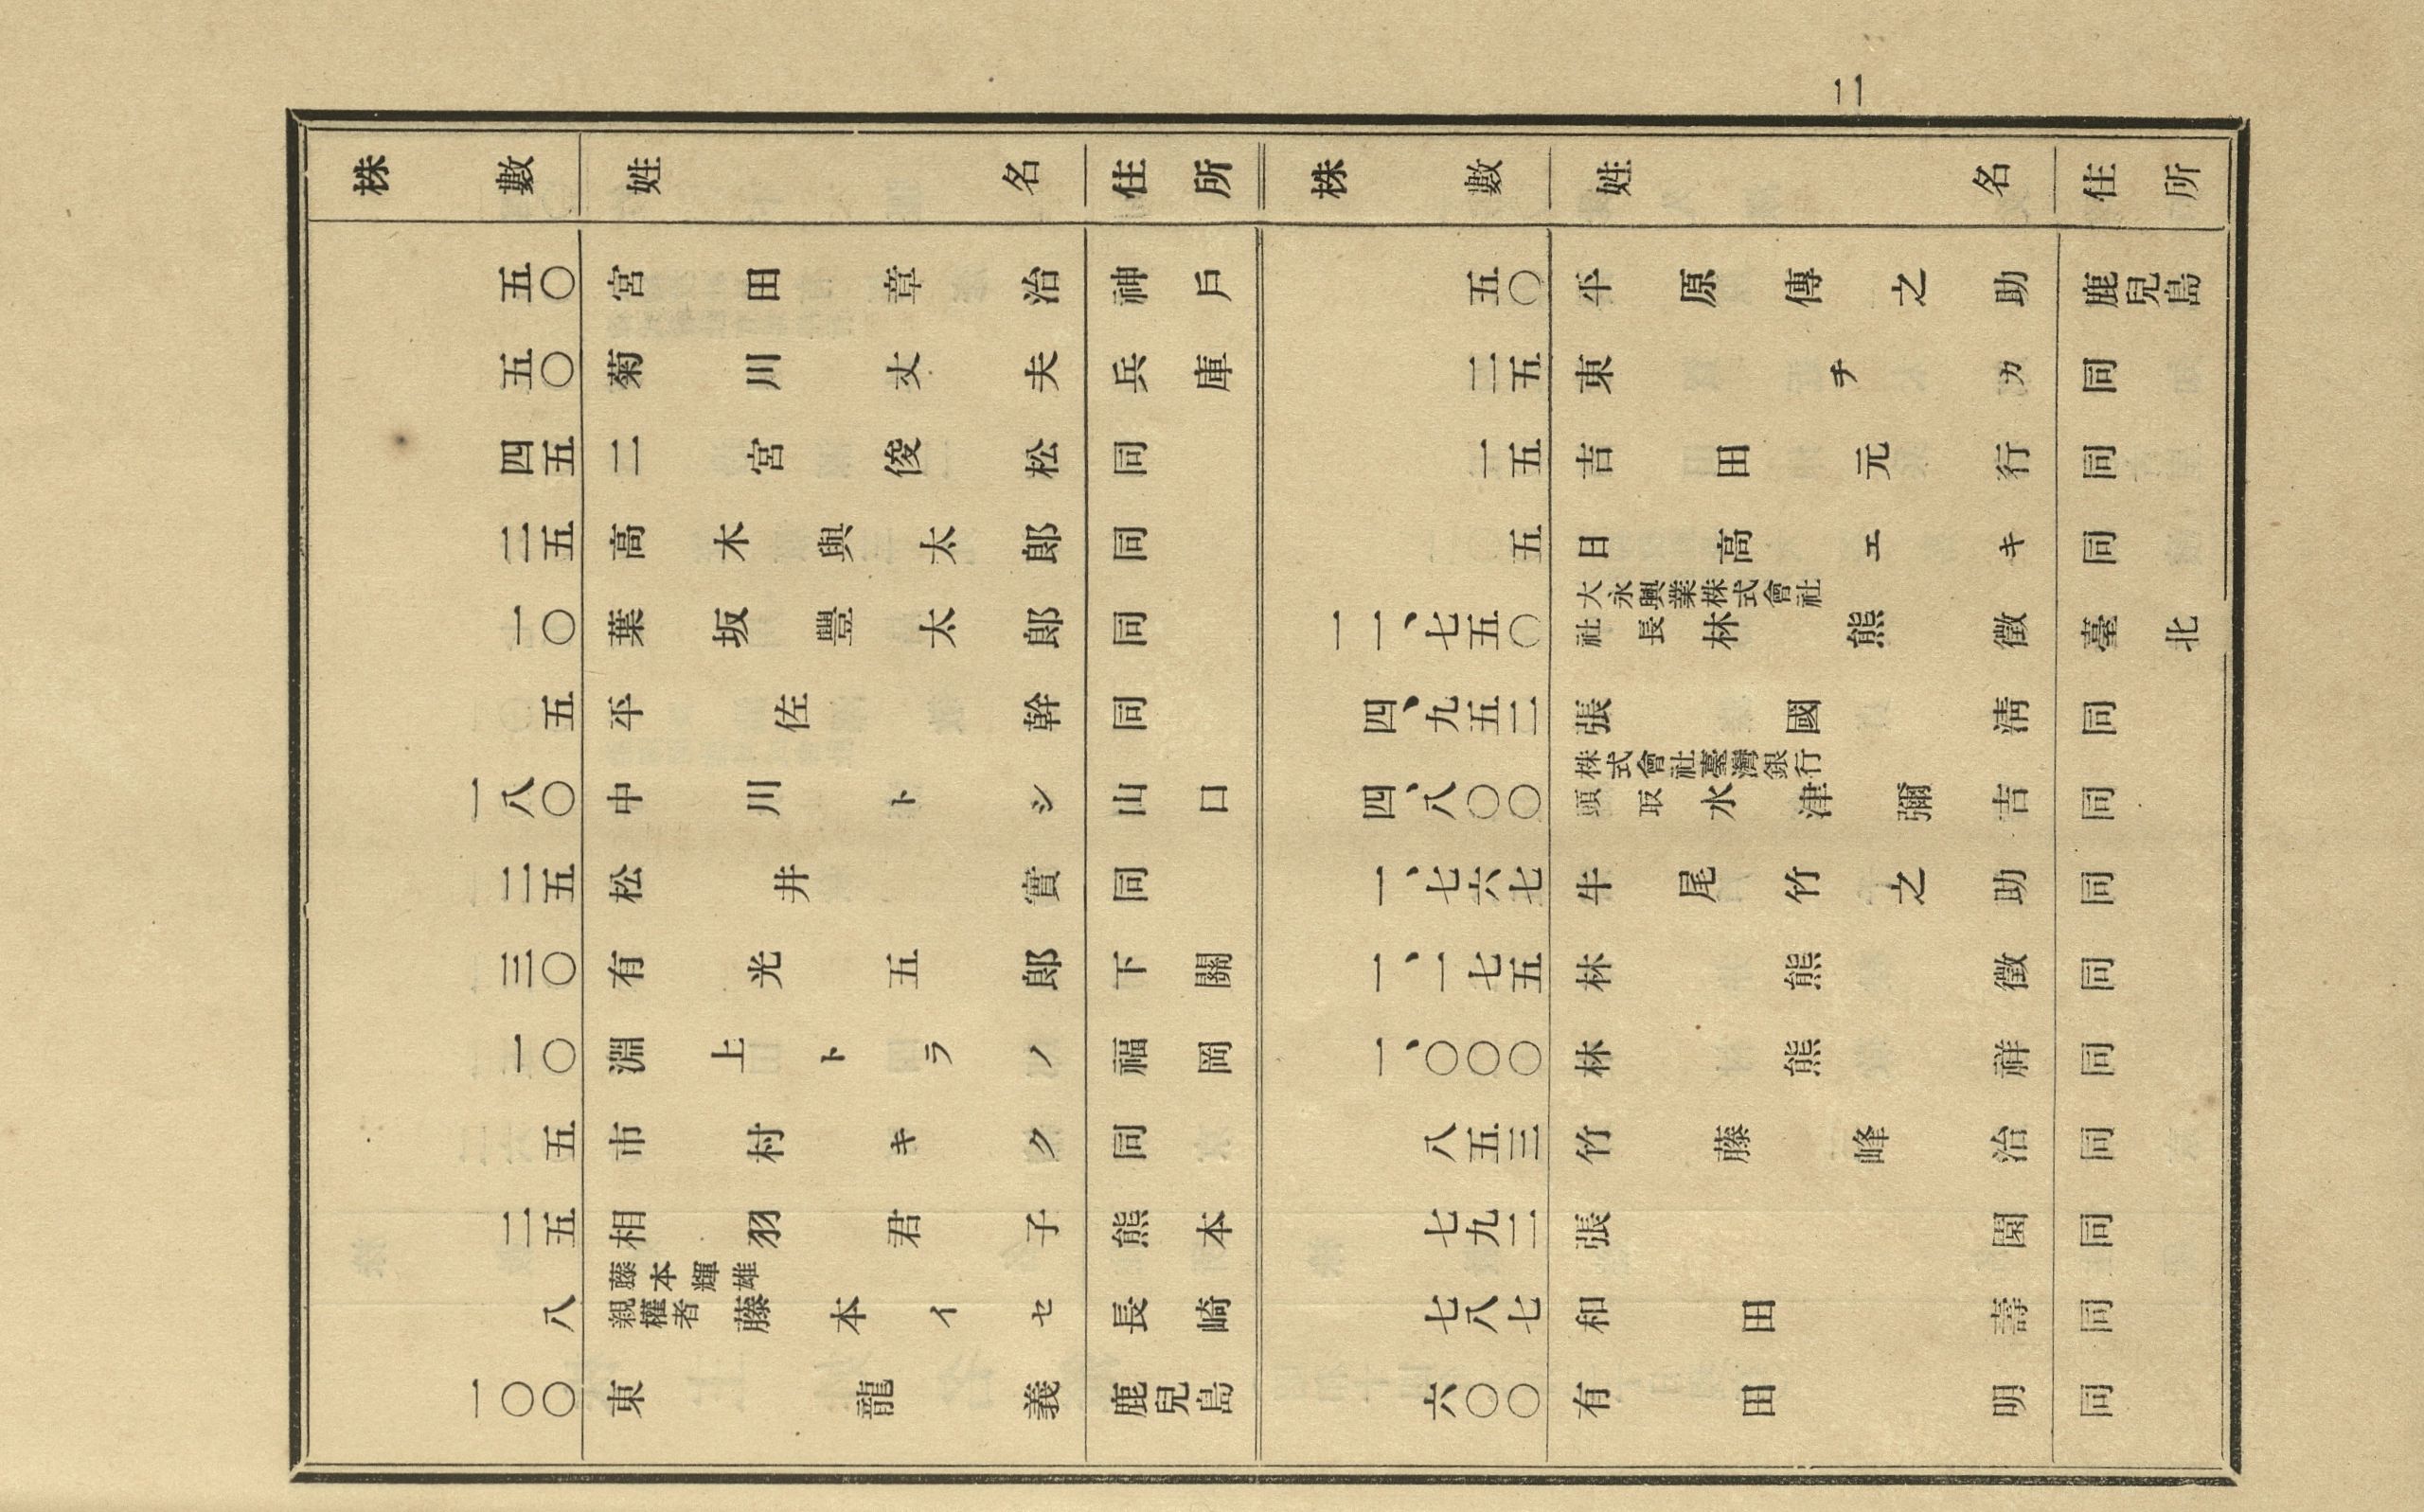 二
株數 姓名 住所
五〇 宮田章治 神戶
五〇 菊川丈夫 兵庫
四五 二宮俊松 同
二五 高木與太郎 同
一〇 葉坂豐太郎 同
五 平佐幹 同
一八〇 中川トシ 山口
二五 松井實 同
三〇 有光五郎 下關
一〇 淵上トラノ 福岡
五 市村キク 同
二五 相羽君子 熊本
藤本輝雄
八 親權者藤本イセ 長崎
一〇〇 東龍義 鹿兒島
株數 姓名 住所
五〇 平原傳之助 鹿兒島
二五 東チカ 同
一五 吉田元行 同
五 日高エキ 同
大永興業株式會社
一一、七五〇 社長林熊徵 臺北
四、九五二 張國淸 同
株式會社臺灣銀行
四、八〇〇 頭取水津彌吉 同
一、七六七 牛尾竹之助 同
一、一七五 林熊徵 同
一、〇〇〇 林熊祥 同
八五三 竹藤峰治 同
七九二 張園 同
七八七 和田壽 同
六〇〇 有田明 同